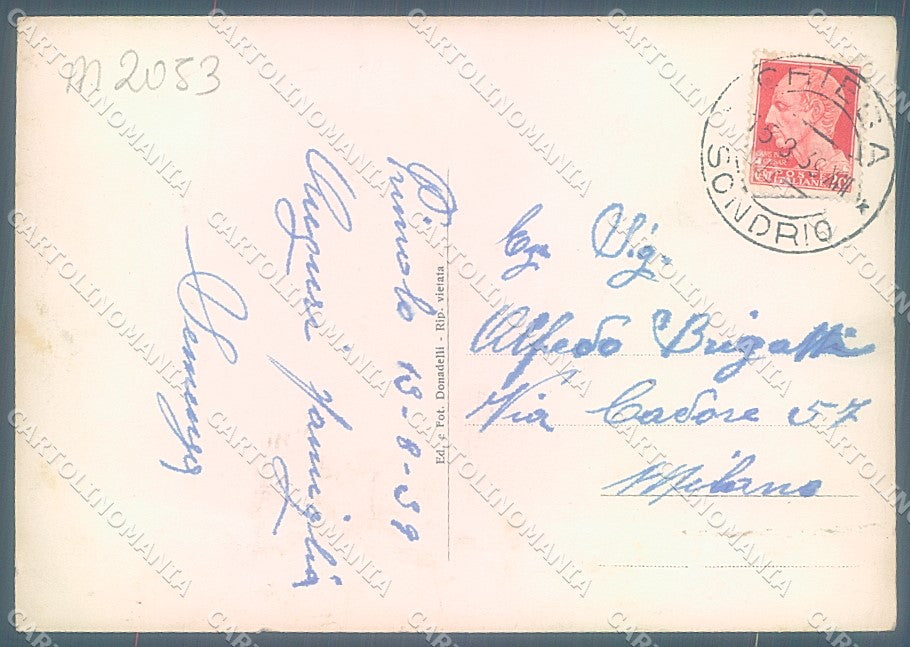 M 2053
Primolo 15-8-39
Auguri famiglia
Ed. e Fot. Donadelli - Rip. vietata
CHIESA
15.8.39
SONDRIO
POSTE ITALIANE
Eg Sig.
Alfredo Brigatti
Via Cadore 57
Milano
CARTOLINOMANIA